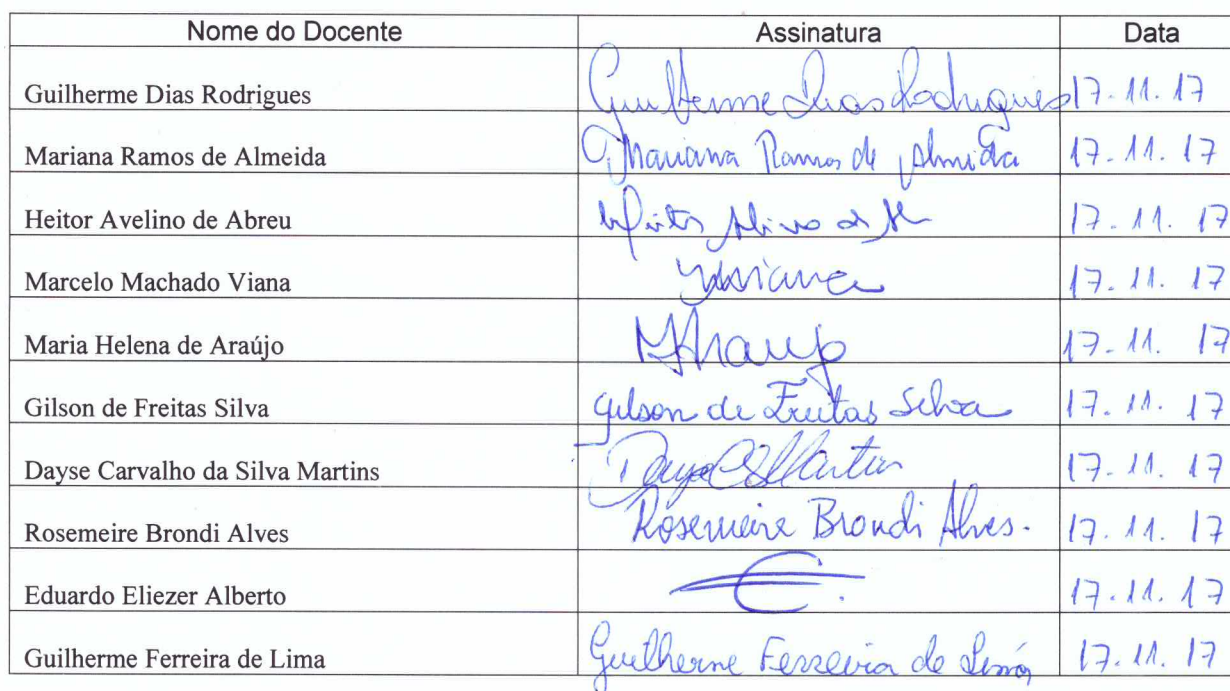 Nome do Docente Assinatura Data
Guilherme Dias Rodrigues Guilherme Dias Rodrigues 17.11.17
Mariana Ramos de Almeida Mariana Ramos de Almeida 17.11.17
Heitor Avelino de Abreu 17.11.17
Marcelo Machado Viana 17.11.17
Maria Helena de Araújo MHAraujo 17.11.17
Gilson de Freitas Silva Gilson de Freitas Silva 17.11.17
Dayse Carvalho da Silva Martins 17.11.17
Rosemeire Brondi Alves Rosemeire Brondi Alves. 17.11.17
Eduardo Eliezer Alberto 17.11.17
Guilherme Ferreira de Lima Guilherme Ferreira de Lima 17.11.17